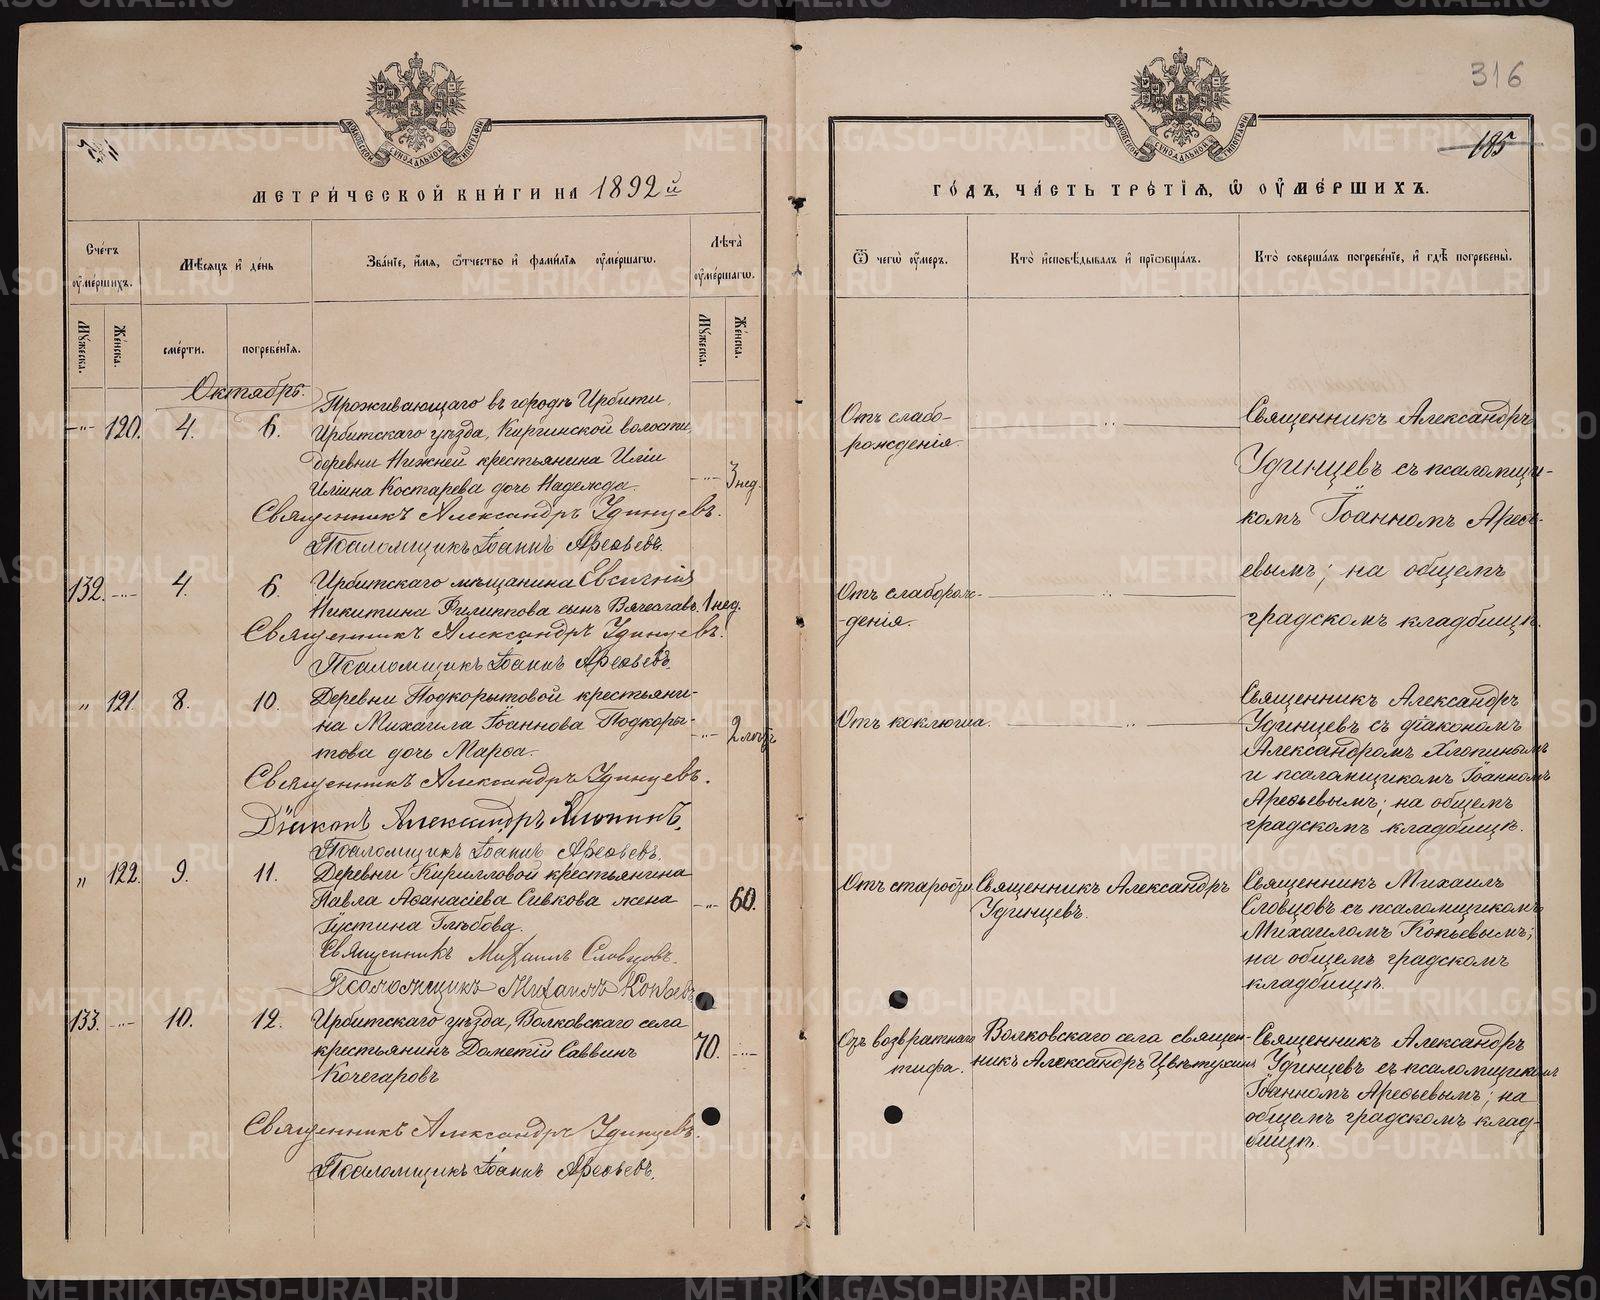 МЕТРИ́ЧЕСКОЙ КНИ́ГИ НА 1892й
Сче́тъ ᲂу҆ме́ршихъ.
Мѣ́сяцъ и҆ де́нь
Зва́нїе, и҆́мя, ѻ҆́тчество и҆ фами́лїя ᲂу҆ме́ршагѡ.
Лѣ́та ᲂу҆ме́ршагѡ.
Мꙋ́жеска.
Же́нска.
сме́рти.
погребе́нїѧ.
Мꙋ́жеска.
Же́нска.
Октябрь.
—"— 120. 4. 6.
Проживающаго въ городѣ Ирбити,
Ирбитскаго уѣзда, Киргинской волости,
деревни Нижней крестьянина Иліи
Иліина Костарева дочь Надежда.
—"— 3 нед.
Священникъ Александръ Удинцевъ.
Псаломщикъ Іоаннъ Арефьевъ.
132. —"— 4. 6.
Ирбитскаго мѣщанина Евсигнія
Никитина Филиппова сынъ Вячеславъ. 1 нед.
Священникъ Александръ Удинцевъ.
Псаломщикъ Іоаннъ Арефьевъ.
" 121. 8. 10.
Деревни Подкорытовой крестьяни-
на Михаила Іоаннова Подкоры-
това дочь Марѳа.
—"— 2 мѣс.
Священникъ Александръ Удинцевъ.
Діаконъ Александръ Хлопинъ.
Псаломщикъ Іоаннъ Арефьевъ.
" 122. 9. 11.
Деревни Кирилловой крестьянина
Павла Аѳанасіева Сивкова жена
Іустина Глѣбова.
—"— 60.
Священникъ Михаилъ Словцовъ.
Псаломщикъ Михаилъ Копьевъ
133. —"— 10. 12.
Ирбитскаго уѣзда, Волковскаго села
крестьянинъ Дометій Саввинъ
Кочегаровъ
70. —"—
Священникъ Александръ Удинцевъ.
Псаломщикъ Іоаннъ Арефьевъ.
316
185
ГО́ДЪ, ЧА́СТЬ ТРЕ́ТІЯ, Ѽ ОУ҆МЕ́РШИХЪ.
Ѿ чегѡ̀ ᲂу҆́меръ.
Кто̀ и҆сповѣ́дывалъ и҆ прїѡбща́лъ.
Кто̀ соверша́лъ погребе́нїе, и҆ гдѣ̀ погребены̀.
Отъ слабо-
рожденія.
Священникъ Александръ
Удинцевъ съ псаломщи-
комъ Іоанномъ Арефь-
евымъ; на общемъ
градскомъ кладбищѣ.
Отъ слаборож-
-денія.
Отъ коклюша.
Священникъ Александръ
Удинцевъ съ діакономъ
Александромъ Хлопинымъ
и псаломщикомъ Іоанномъ
Арефьевымъ; на общемъ
градскомъ кладбищѣ.
Отъ старости
Священникъ Александръ
Удинцевъ.
Священникъ Михаилъ
Словцовъ съ псаломщикомъ
Михаиломъ Копьевымъ;
на общемъ градскомъ
кладбищѣ.
Отъ возвратнаго
тифа.
Волковскаго села священ-
никъ Александръ Цвѣтухинъ
Священникъ Александръ
Удинцевъ съ псаломщикомъ
Іоанномъ Арефьевымъ; на
общемъ градскомъ клад-
бищѣ.
METRIKI.GASO-URAL.RU